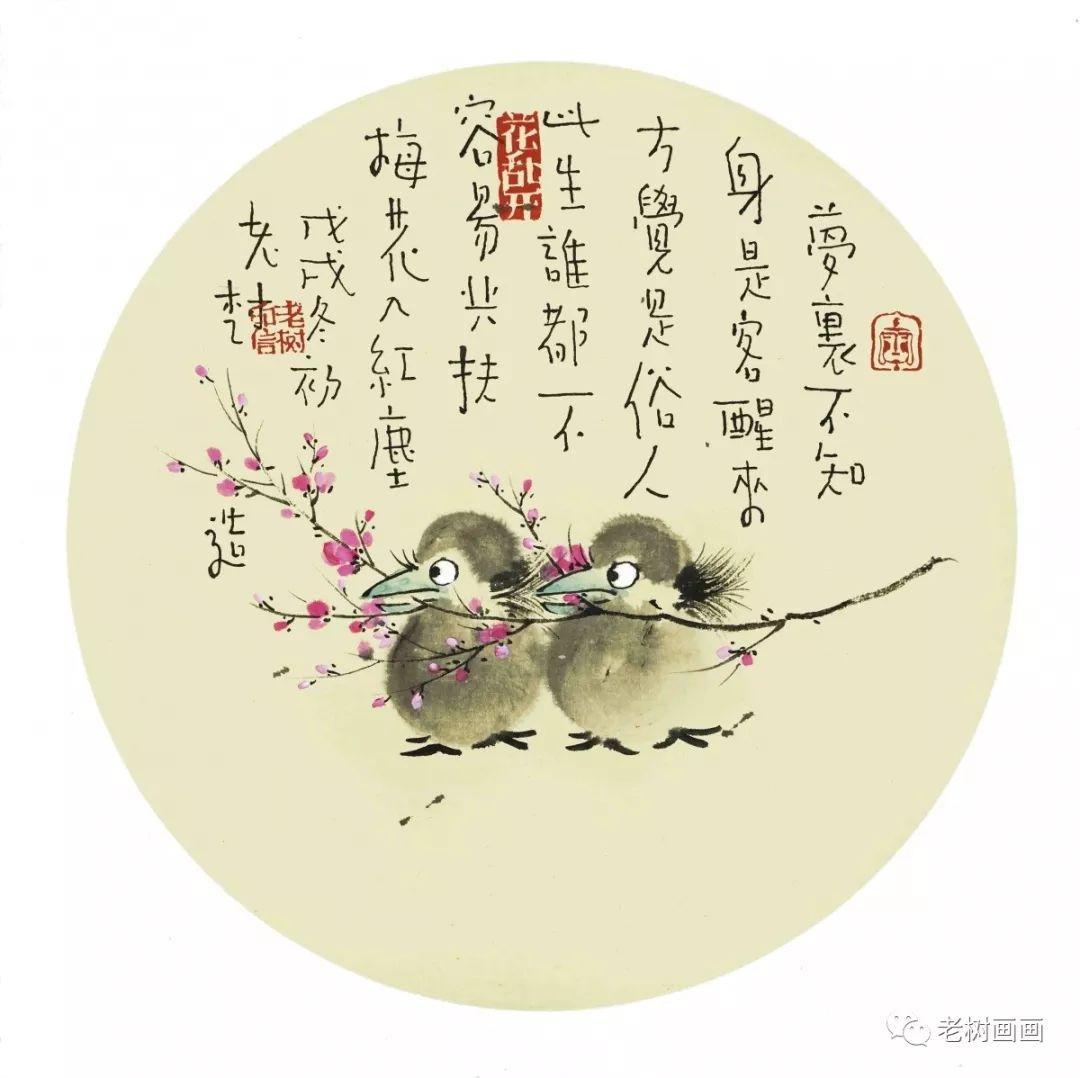 夢裏不知
身是客醒來
方覺是俗人
此生誰都不
容易共扶
梅花入紅塵
戊戌冬初
老树
造
花乱开
老树
和信
老树画画